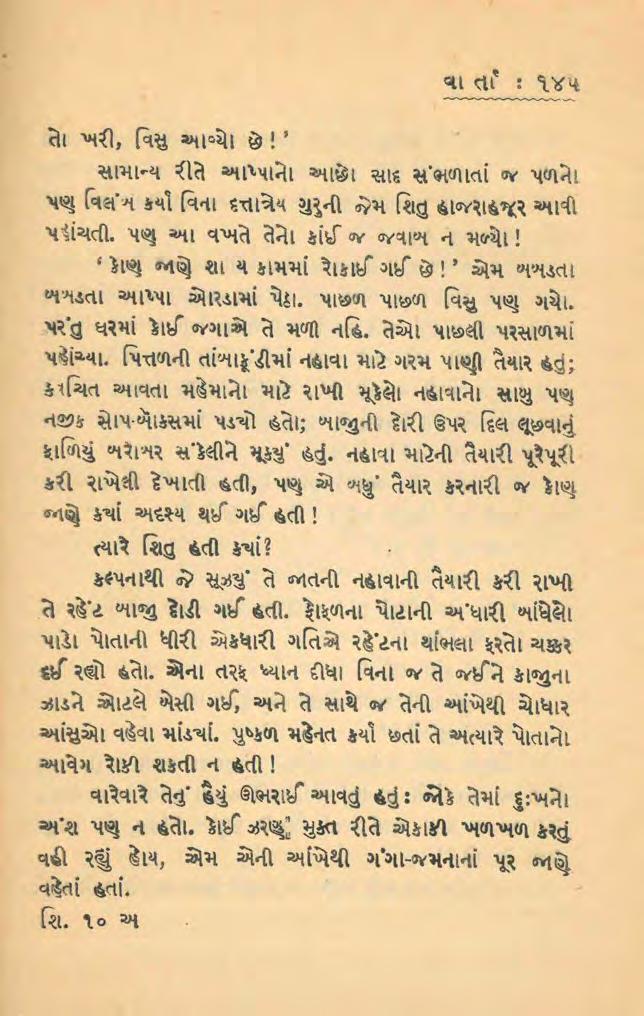 વા ર્તા : ૧૪૫
તો ખરી, વિસુ આવ્યો છે!’
સામાન્ય રીતે આપ્પાનો આછો સાદ સંભળાતાં જ પળનો
પણ વિલંબ કર્યા વિના દત્તાત્રેય ગુરુની જેમ શિતુ હાજરાહજૂર આવી
પહોંચતી. પણ આ વખતે તેનો કાંઈ જ જવાબ ન મળ્યો!
‘કોણ જાણે શા ય કામમાં રોકાઈ ગઈ છે!’ એમ બબડતા
બબડતા આપ્પા ઓરડામાં પેઠા. પાછળ પાછળ વિસુ પણ ગયો.
પરંતુ ઘરમાં કોઈ જગાએ તે મળી નહિ. તેઓ પાછલી પરસાળમાં
પહોંચ્યા. પિત્તળની તાંબાકૂંડીમાં નહાવા માટે ગરમ પાણી તૈયાર હતું;
કવચિત આવતા મહેમાનો માટે રાખી મૂકેલો નહાવાનો સાબુ પણ
નજીક સોપ-બૉક્સમાં પડ્યો હતો; બાજુની દોરી ઉપર દિલ લૂછવાનું
ફાળિયું બરોબર સંકેલીને મૂક્યું હતું. નહાવા માટેની તૈયારી પૂરેપૂરી
કરી રાખેલી દેખાતી હતી, પણ એ બધું તૈયાર કરનારી જ કોણ
જાણે ક્યાં અદૃશ્ય થઈ ગઈ હતી!
ત્યારે શિતુ હતી ક્યાં?
કલ્પનાથી જે સૂઝ્યું તે જાતની નહાવાની તૈયારી કરી રાખી
તે રહેંટ બાજુ દોડી ગઈ હતી. ફોફળના પોટાની અંધારી બાંધેલો
પાડો પોતાની ધીરી એકધારી ગતિએ રહેંટના થાંભલા ફરતો ચક્કર
દઈ રહ્યો હતો. એના તરફ ધ્યાન દીધા વિના જ તે જઈને કાજુના
ઝાડને ઓટલે બેસી ગઈ, અને તે સાથે જ તેની આંખેથી ચોધાર
આંસુઓ વહેવા માંડ્યાં. પુષ્કળ મહેનત કર્યા છતાં તે અત્યારે પોતાનો
આવેગ રોકી શકતી ન હતી!
વારેવારે તેનું હૈયું ઊભરાઈ આવતું હતું: જોકે તેમાં દુઃખનો
અંશ પણ ન હતો. કોઈ ઝરણું મુક્ત રીતે એકાકી ખળખળ કરતું
વહી રહ્યું હોય, એમ એની આંખેથી ગંગા-જમનાનાં પૂર જાણે
વહેતાં હતાં.
શિ. ૧૦ અ